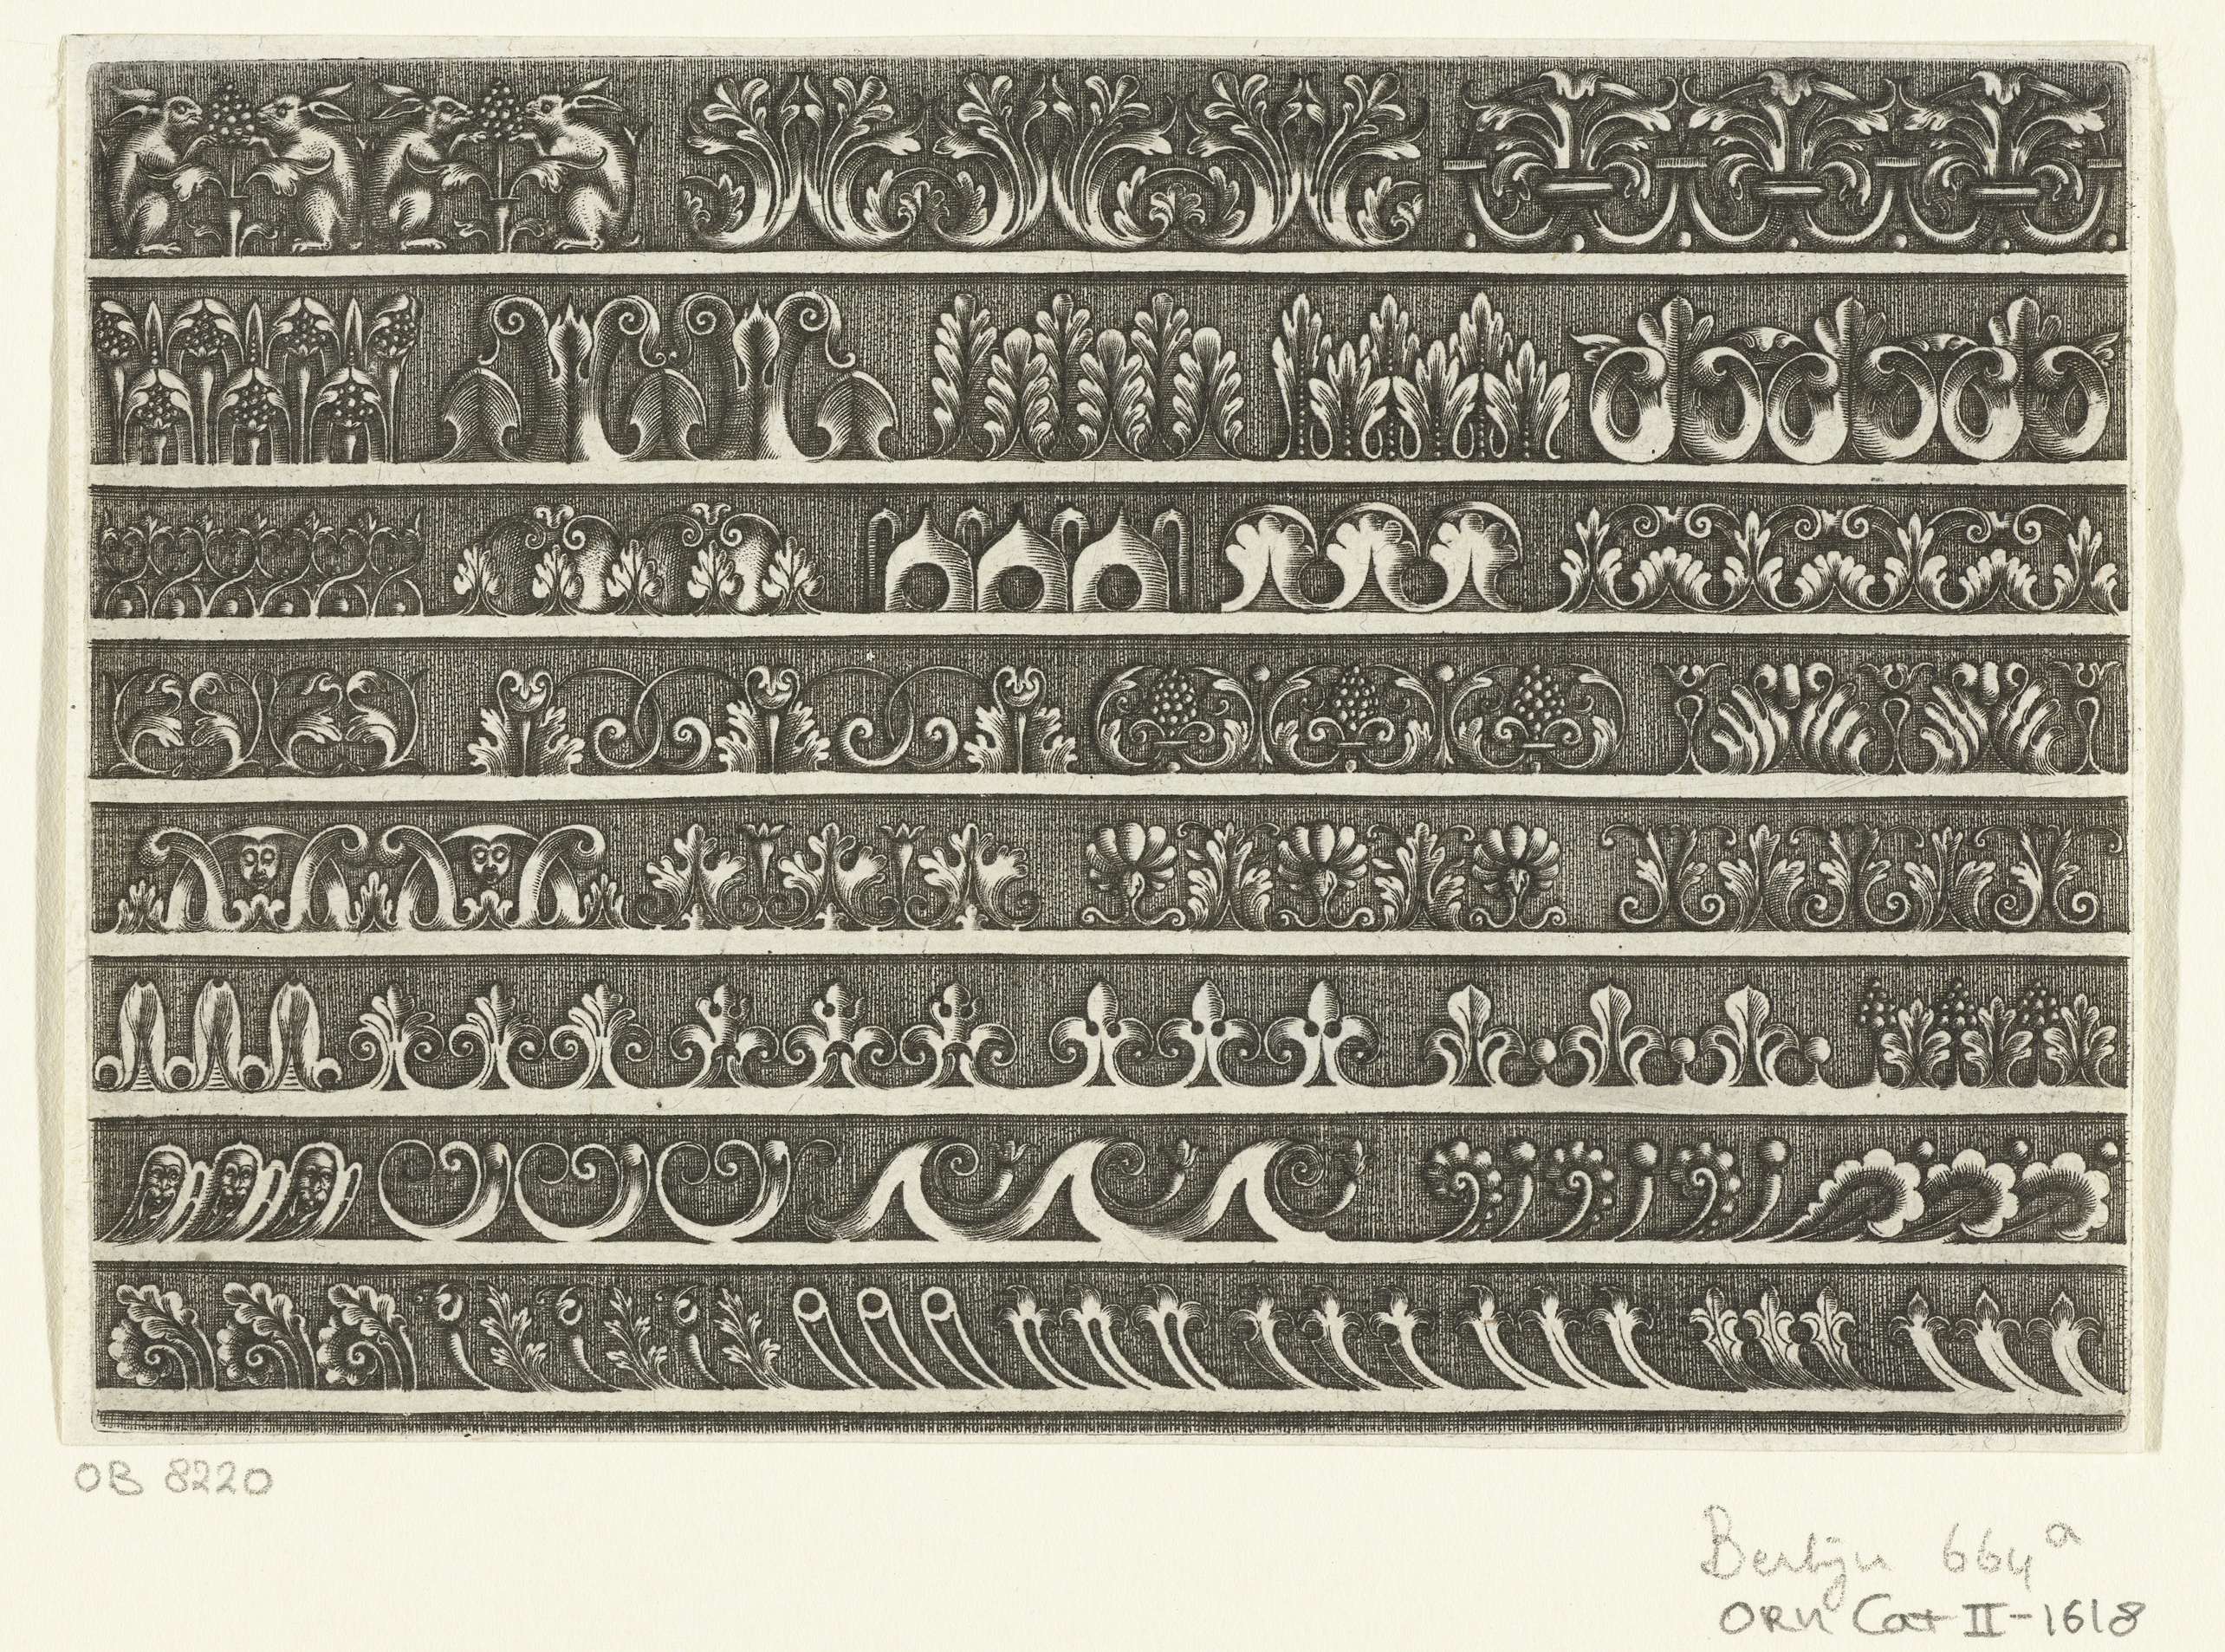 OB 8220
Berlijn 664a
ORN Cat II-1618